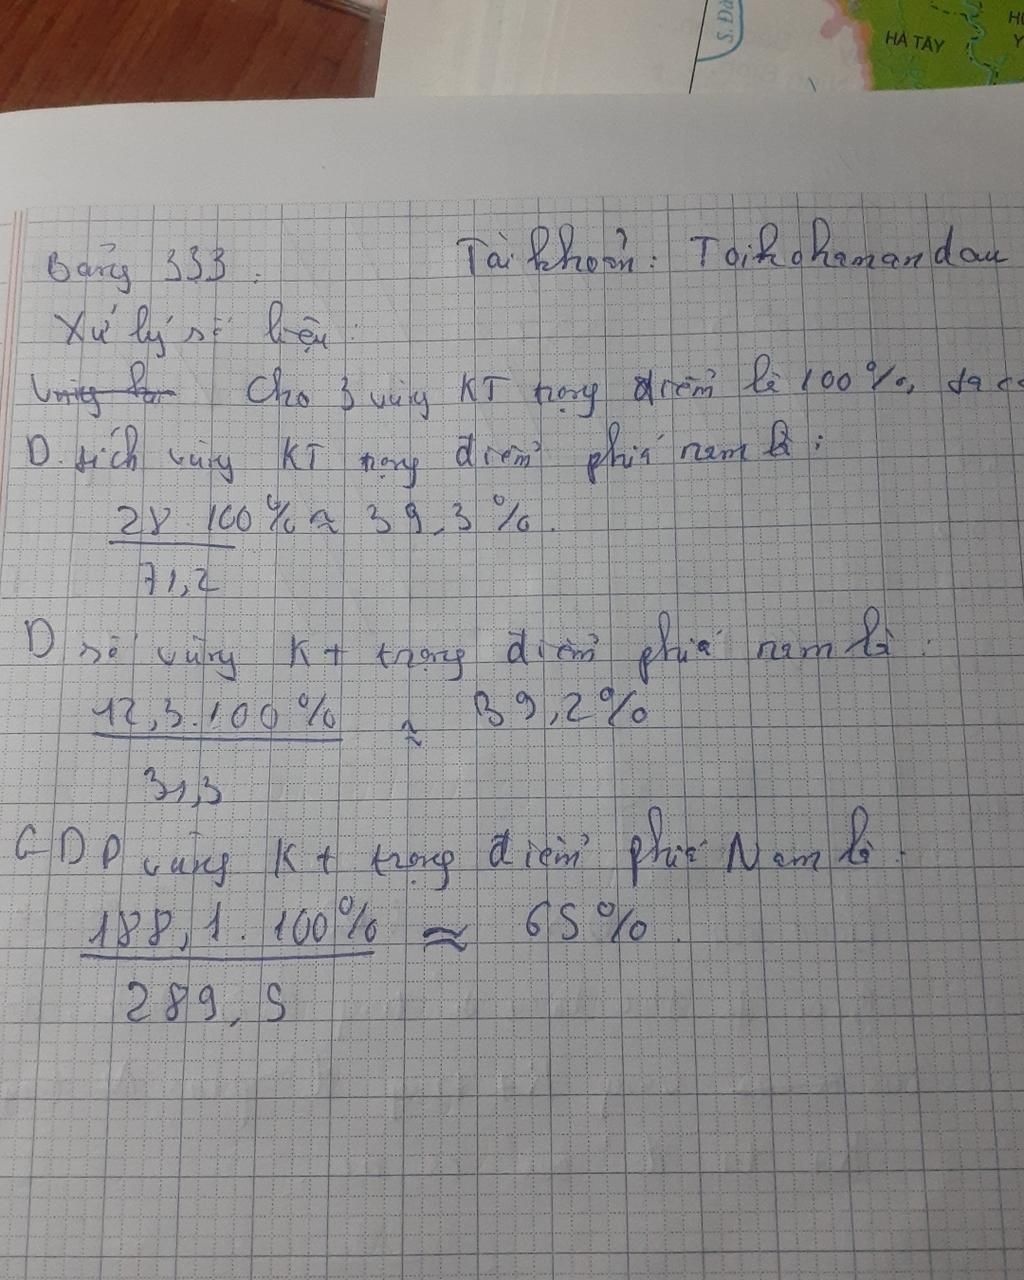 S. Đà
HÀ TÂY
Bảng 333. Tài khoản: Taikhohamandau
Xử lý số liệu:
Cho 3 vùng KT trọng điểm là 100%, ta có
D. tích vùng KT trọng điểm phía nam là:
28.100% ≈ 39,3%.
71,2
D số vùng Kt trọng điểm phía nam là:
12,3.100% ≈ 39,2%
31,3
GDP vùng Kt trọng điểm phía Nam là.
188,1.100% ≈ 65%.
289,5